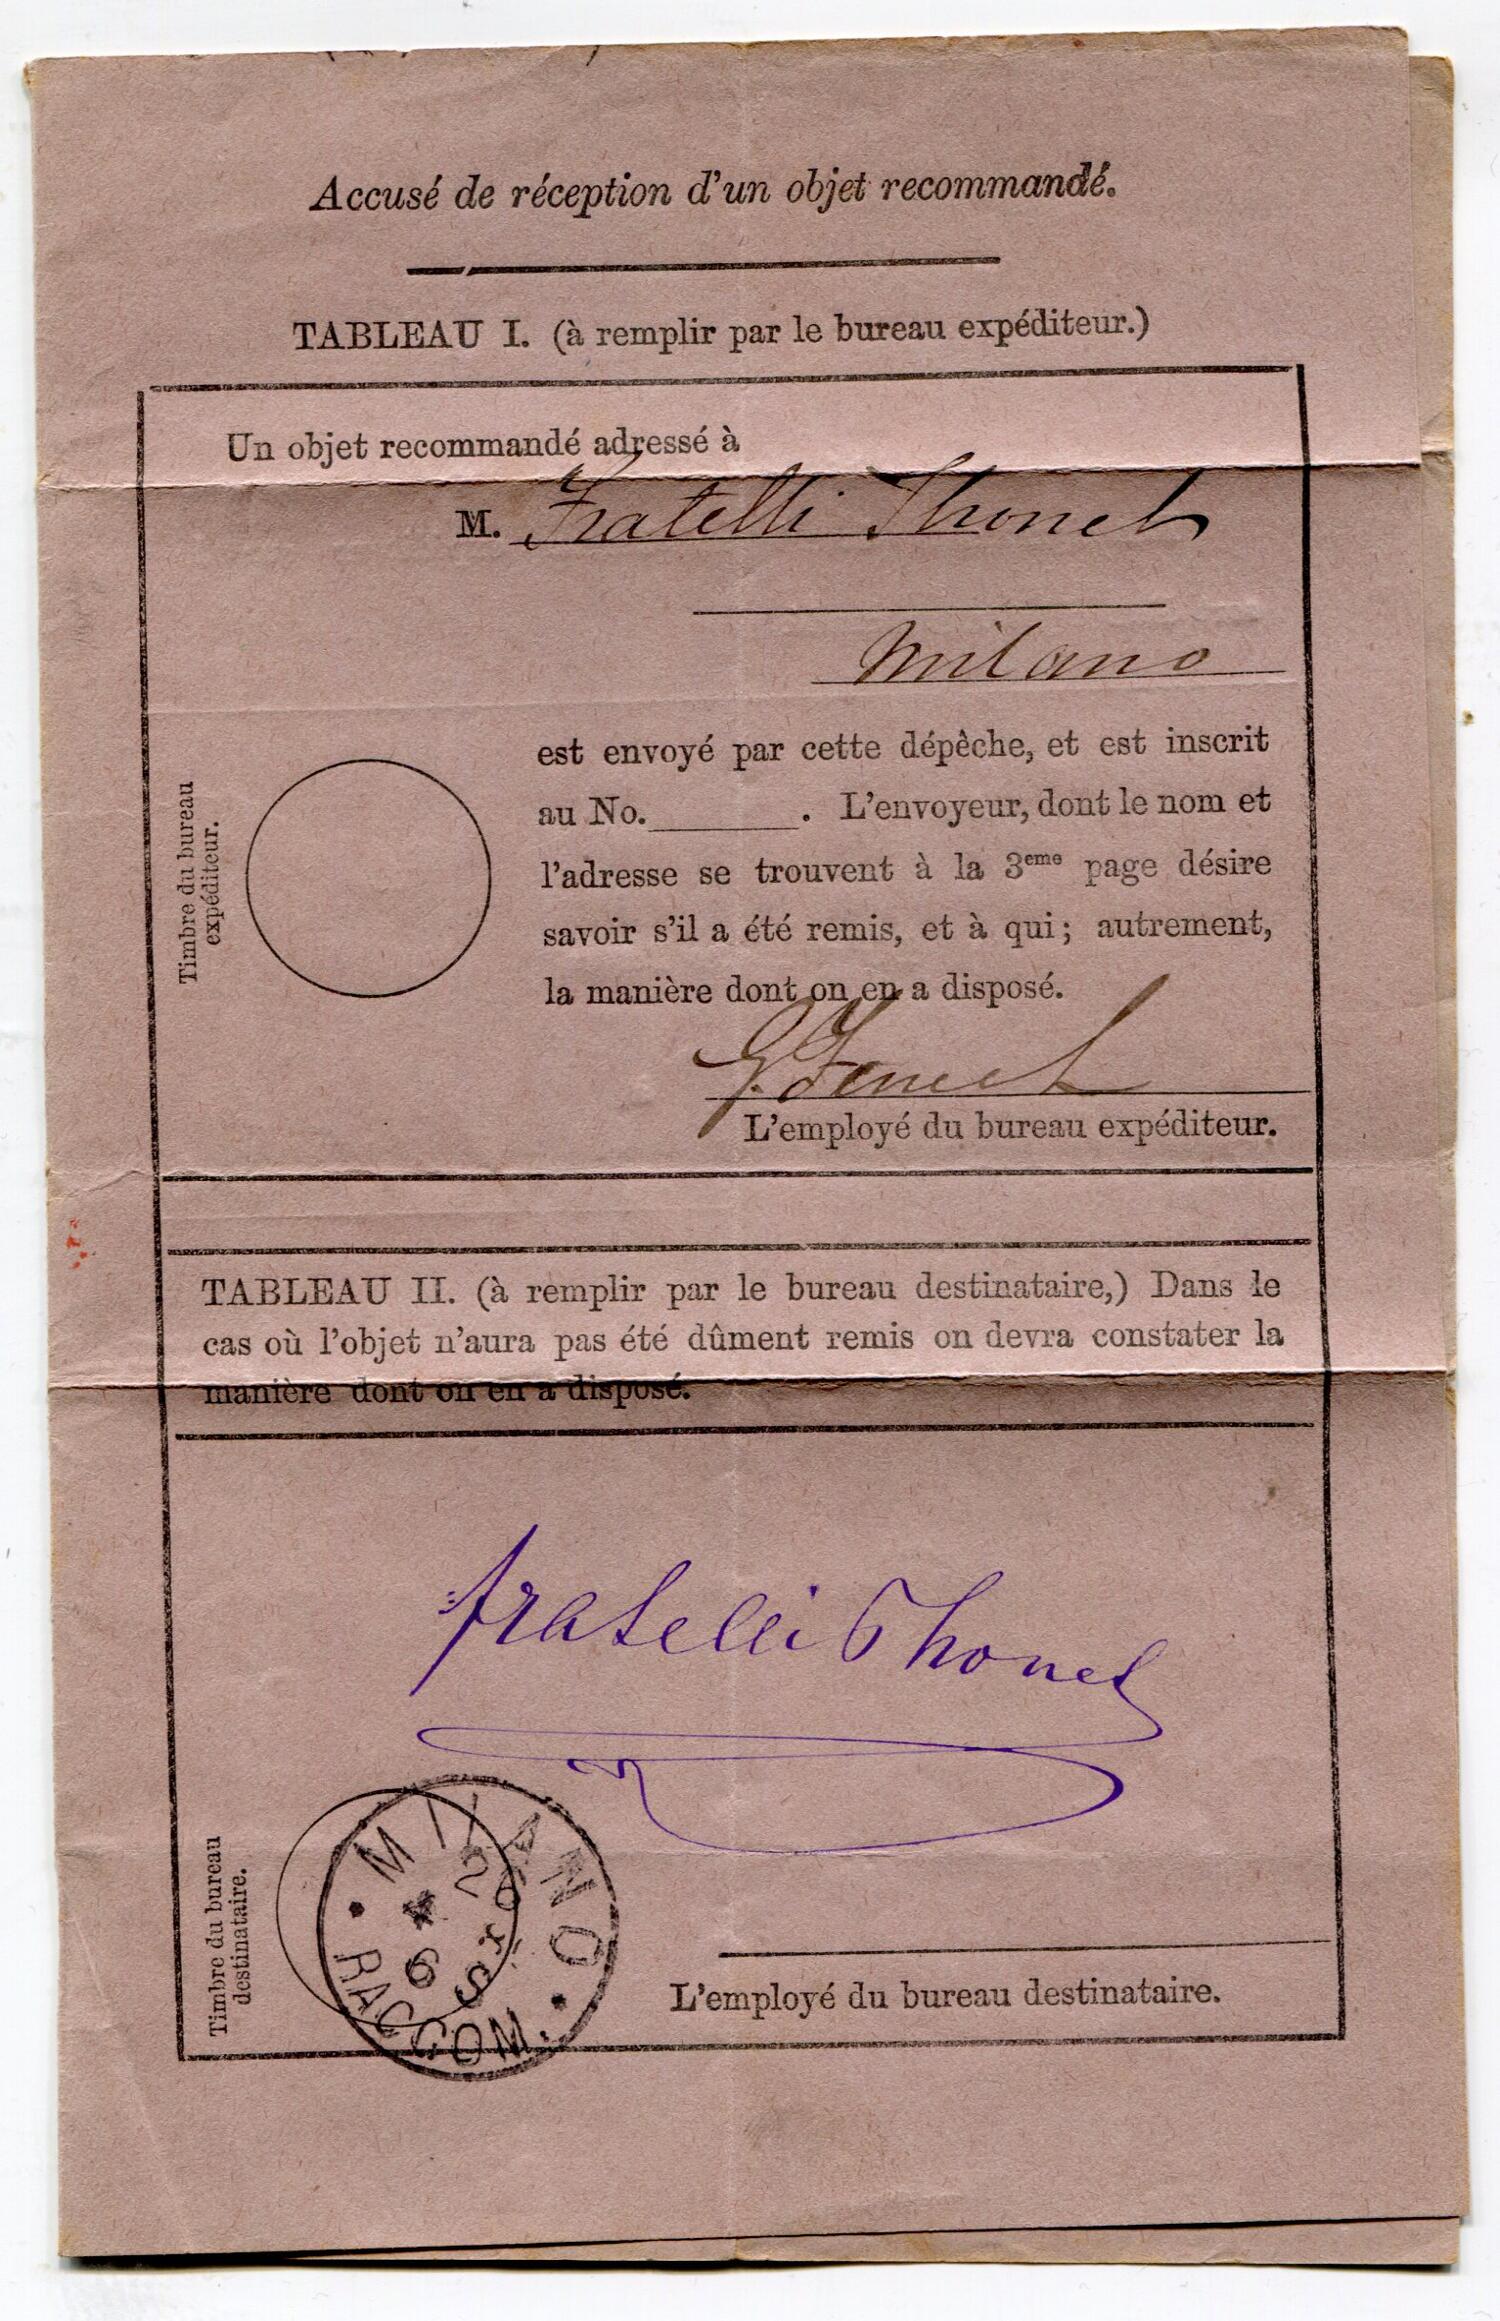 Accusé de réception d'un objet recommandé.
TABLEAU I. (à remplir par le bureau expéditeur.)
Un objet recommandé adressé à
M. Fratelli Thonet
Milano
est envoyé par cette dépêche, et est inscrit
au No. . L'envoyeur, dont le nom et
l'adresse se trouvent à la 3eme page désire
savoir s'il a été remis, et à qui; autrement,
la manière dont on en a disposé.
Timbre du bureau
expéditeur.
L'employé du bureau expéditeur.
TABLEAU II. (à remplir par le bureau destinataire,) Dans le
cas où l'objet n'aura pas été dûment remis on devra constater la
manière dont on en a disposé.
Fratelli Thonet
Timbre du bureau
destinataire.
MILANO
RACCOM.
L'employé du bureau destinataire.